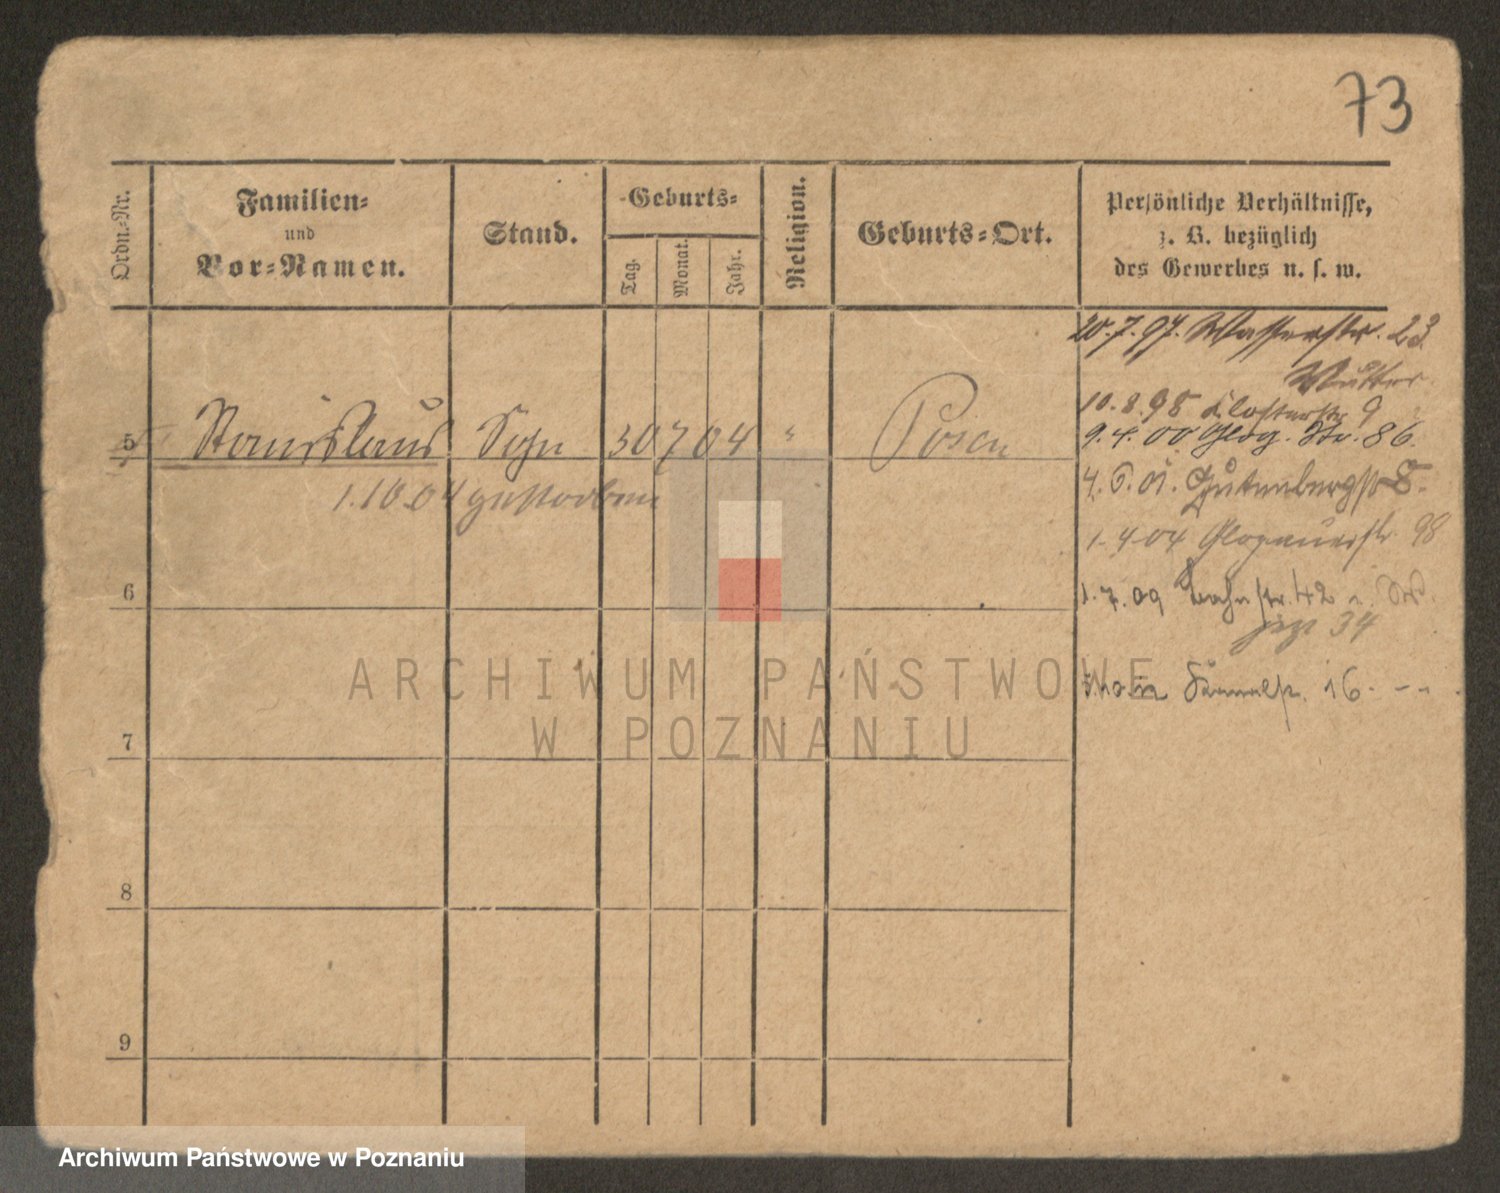 73
Ordn.-Nr.
Familien-
und
Vor-Namen.
Stand.
Geburts-
Tag.
Monat.
Jahr.
Religion.
Geburts-Ort.
Persönliche Verhältnisse,
z. B. bezüglich
des Gewerbes u. s. w.
20.7.97. Wasserstr. 23
Mutter
10.8.98 Klosterstr 9
9.4.00 Glog. Str. 86.
5 Stanislaus Sohn 30 7 04 " Posen
1.10.04 gestorben
4.6.01. Gutenbergstr 8.
1-4-04 Glogauerstr. 98
6
1.7.09 Bahnstr. 42
34
16
7
8
9
ARCHIWUM PAŃSTWOWE
W POZNANIU
Archiwum Państwowe w Poznaniu